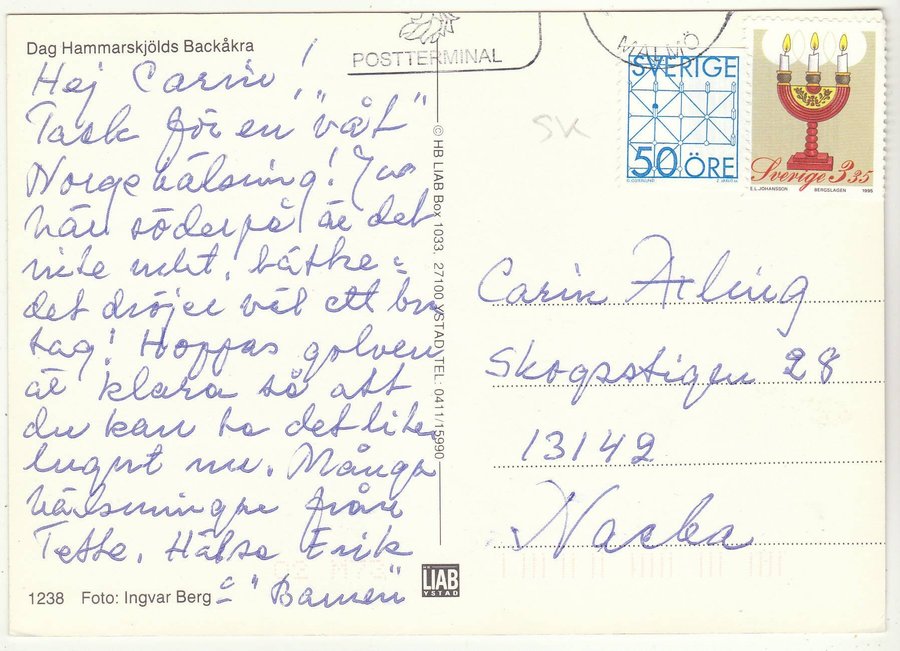 Dag Hammarskjölds Backåkra
Hej Carin!
Tack för en "våt"
Norgehälsning! Men
här söderpå är det
inte mkt. bättre -
det dröjer väl ett bra
tag! Hoppas golven
är klara så att
du kan ta det lite
lugnt nu. Många
hälsningar från
Tette. Hälsa Erik
& "Barnen"
1238 Foto: Ingvar Berg
© HB LIAB Box 1033, 27100 YSTAD, TEL: 0411/15990
LIAB
YSTAD
POSTTERMINAL
MALMÖ
SK
SVERIGE
50 ÖRE
Sverige 3.35
E.L. JOHANSSON BERGSLAGEN 1995
Carin Arling
Skogsstigen 28
13142
Nacka